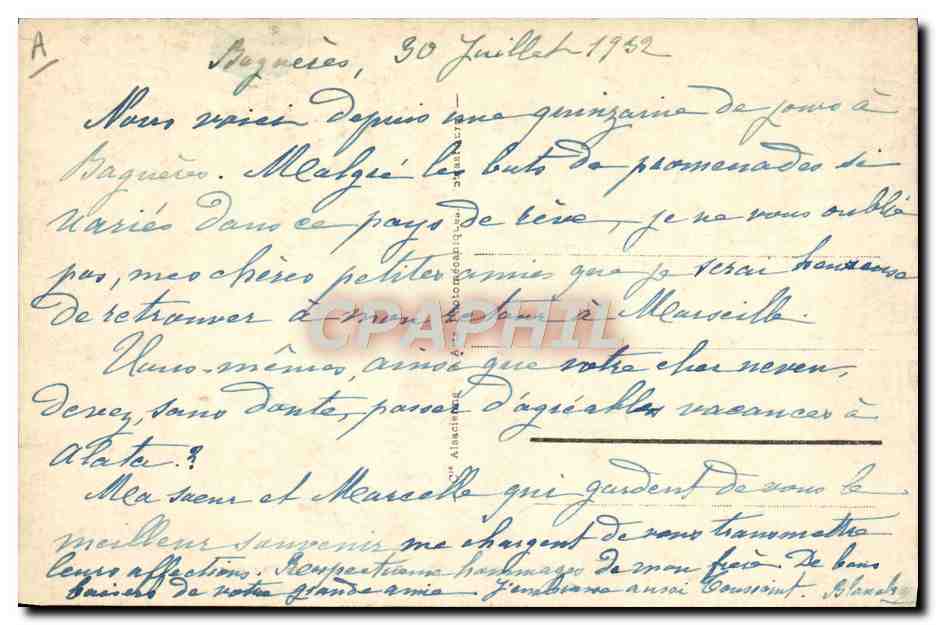 A
Bagnères, 30 Juillet 1932
Nous voici depuis une quinzaine de jours à
Bagnères. Malgré les buts de promenades si
variés dans ce pays de rêve, je ne vous oublie
pas, mes chères petites amies que je serai heureuse
de retrouver à mon retour à Marseille.
Vous-mêmes, ainsi que votre cher neveu,
devez, sans doute, passer d'agréables vacances à
Alata.?
Ma soeur et Marcelle qui gardent de vous le
meilleur souvenir me chargent de vous transmettre
leurs affections. Respectueux hommages de mon frère. De bons
baisers de votre grande amie. J'embrasse aussi Toussaint.
CPAPHIL
Cie Alsacienne Arts Photomécaniques, Strasbourg